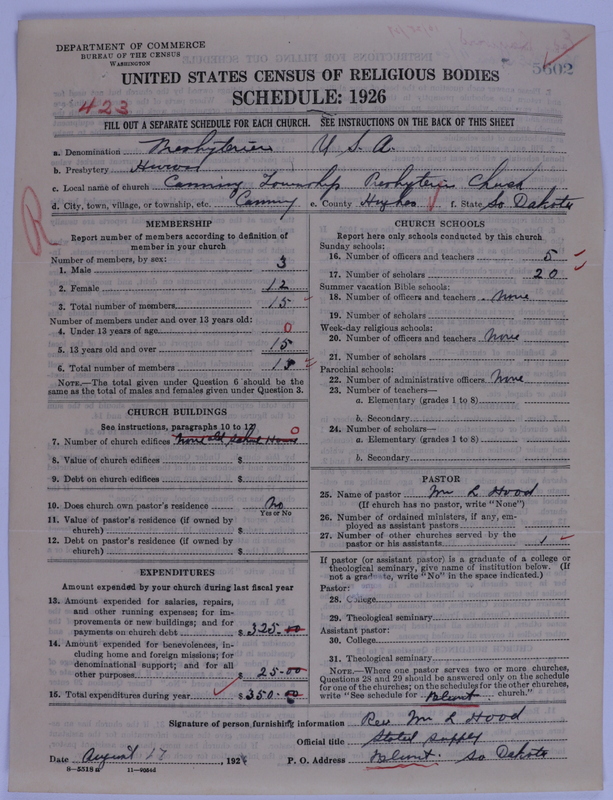 DEPARTMENT OF COMMERCE
BUREAU OF THE CENSUS
WASHINGTON
5602
UNITED STATES CENSUS OF RELIGIOUS BODIES
SCHEDULE: 1926
423
FILL OUT A SEPARATE SCHEDULE FOR EACH CHURCH. SEE INSTRUCTIONS ON THE BACK OF THIS SHEET
a. Denomination Presbyterian U. S. A.
b. Presbytery Huron
c. Local name of church Canning Township Presbyterian Church
d. City, town, village, or township, etc. Canning e. County Hughes f. State So Dakota
R
MEMBERSHIP
Report number of members according to definition of member in your church
Number of members, by sex:
1. Male 3
2. Female 12
3. Total number of members 15
Number of members under and over 13 years old:
4. Under 13 years of age 0
5. 13 years old and over 15
6. Total number of members 15
NOTE.—The total given under Question 6 should be the same as the total of males and females given under Question 3.
CHURCH BUILDINGS
See instructions, paragraphs 10 to 12
7. Number of church edifices None old School House 0
8. Value of church edifices $
9. Debt on church edifices $
10. Does church own pastor's residence No
Yes or No
11. Value of pastor's residence (if owned by church) $
12. Debt on pastor's residence (if owned by church) $
EXPENDITURES
Amount expended by your church during last fiscal year
13. Amount expended for salaries, repairs, and other running expenses; for improvements or new buildings; and for payments on church debt $ 325.00
14. Amount expended for benevolences, including home and foreign missions; for denominational support; and for all other purposes $ 25.00
15. Total expenditures during year $ 350.00
CHURCH SCHOOLS
Report here only schools conducted by this church
Sunday schools:
16. Number of officers and teachers 5
17. Number of scholars 20
Summer vacation Bible schools:
18. Number of officers and teachers None
19. Number of scholars
Week-day religious schools:
20. Number of officers and teachers None
21. Number of scholars
Parochial schools:
22. Number of administrative officers None
23. Number of teachers—
a. Elementary (grades 1 to 8)
b. Secondary
24. Number of scholars—
a. Elementary (grades 1 to 8)
b. Secondary
PASTOR
25. Name of pastor Wm L Hood
(If church has no pastor, write "None")
26. Number of ordained ministers, if any, employed as assistant pastors
27. Number of other churches served by the pastor or his assistants 1
If pastor (or assistant pastor) is a graduate of a college or theological seminary, give name of institution below. (If not a graduate, write "No" in the space indicated.)
Pastor:
28. College
29. Theological seminary
Assistant pastor:
30. College
31. Theological seminary
NOTE.—Where one pastor serves two or more churches, Questions 28 and 29 should be answered only on the schedule for one of the churches; on the schedules for the other churches, write "See schedule for Blunt church."
Signature of person furnishing information Rev. Wm L Hood
Official title Stated Supply
Date August 17, 1926 P. O. Address Blunt So Dakota
8—5518a 11—9054d